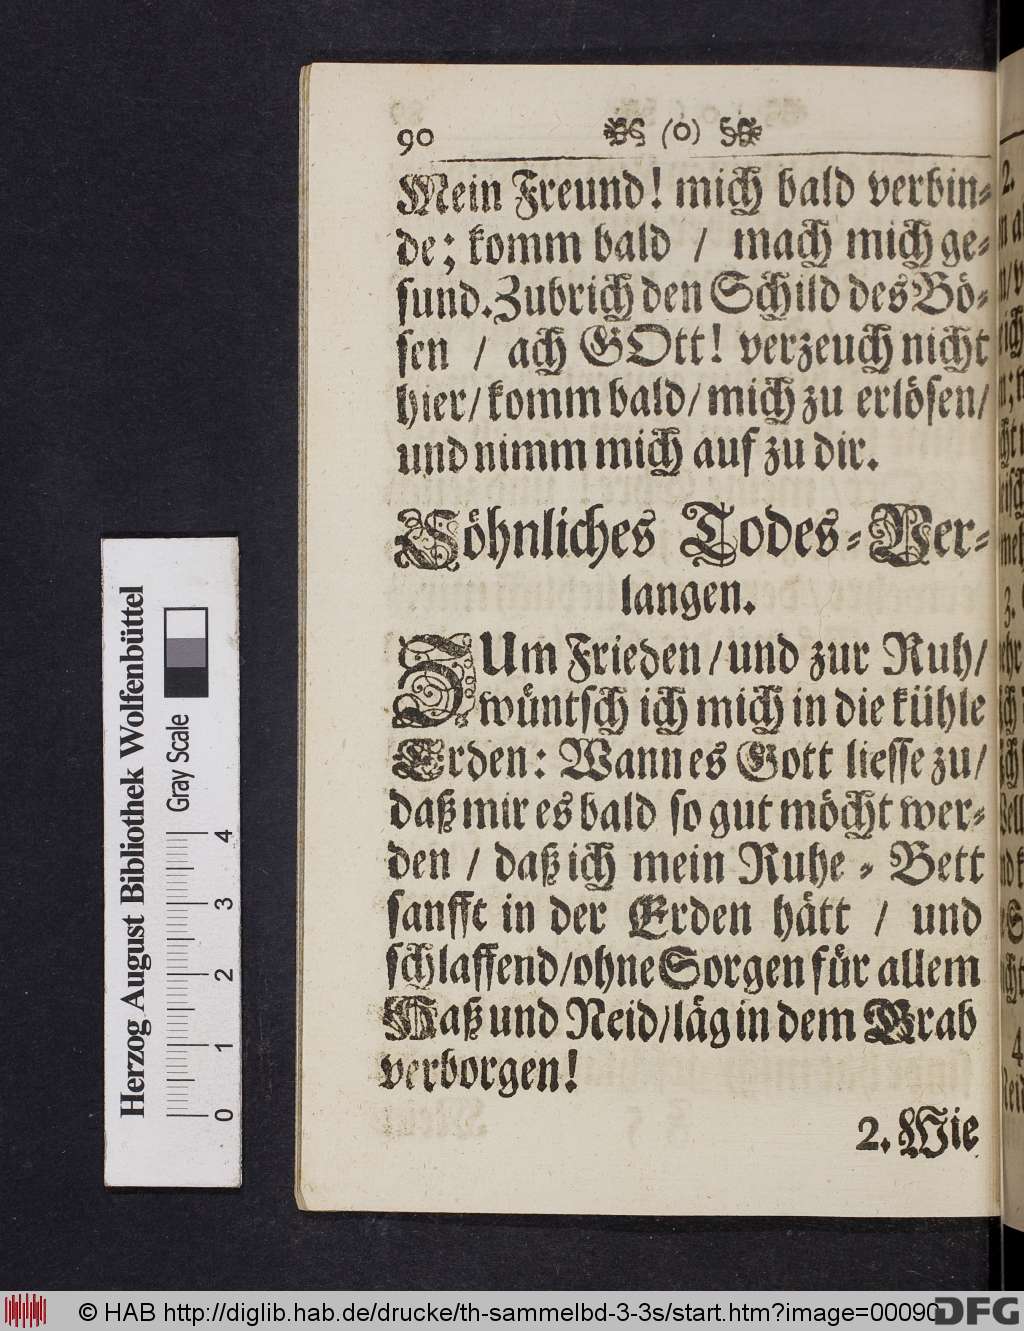 90 (0)
Mein Freund! mich bald verbin-
de; komm bald / mach mich ge-
sund. Zubrich den Schild des Bö-
sen / ach GOtt! verzeuch nicht
hier/ komm bald/ mich zu erlösen/
und nimm mich auf zu dir.
Söhnliches Todes-Ver-
langen.
ZUm Frieden/ und zur Ruh/
wüntsch ich mich in die kühle
Erden: Wann es Gott liesse zu/
daß mir es bald so gut möcht wer-
den / daß ich mein Ruhe-Bett
sanfft in der Erden hätt / und
schlaffend/ ohne Sorgen für allem
Haß und Neid/ läg in dem Grab
verborgen!
2. Wie
Herzog August Bibliothek Wolfenbüttel
Gray Scale
0 1 2 3 4
© HAB http://diglib.hab.de/drucke/th-sammelbd-3-3s/start.htm?image=00090
DFG